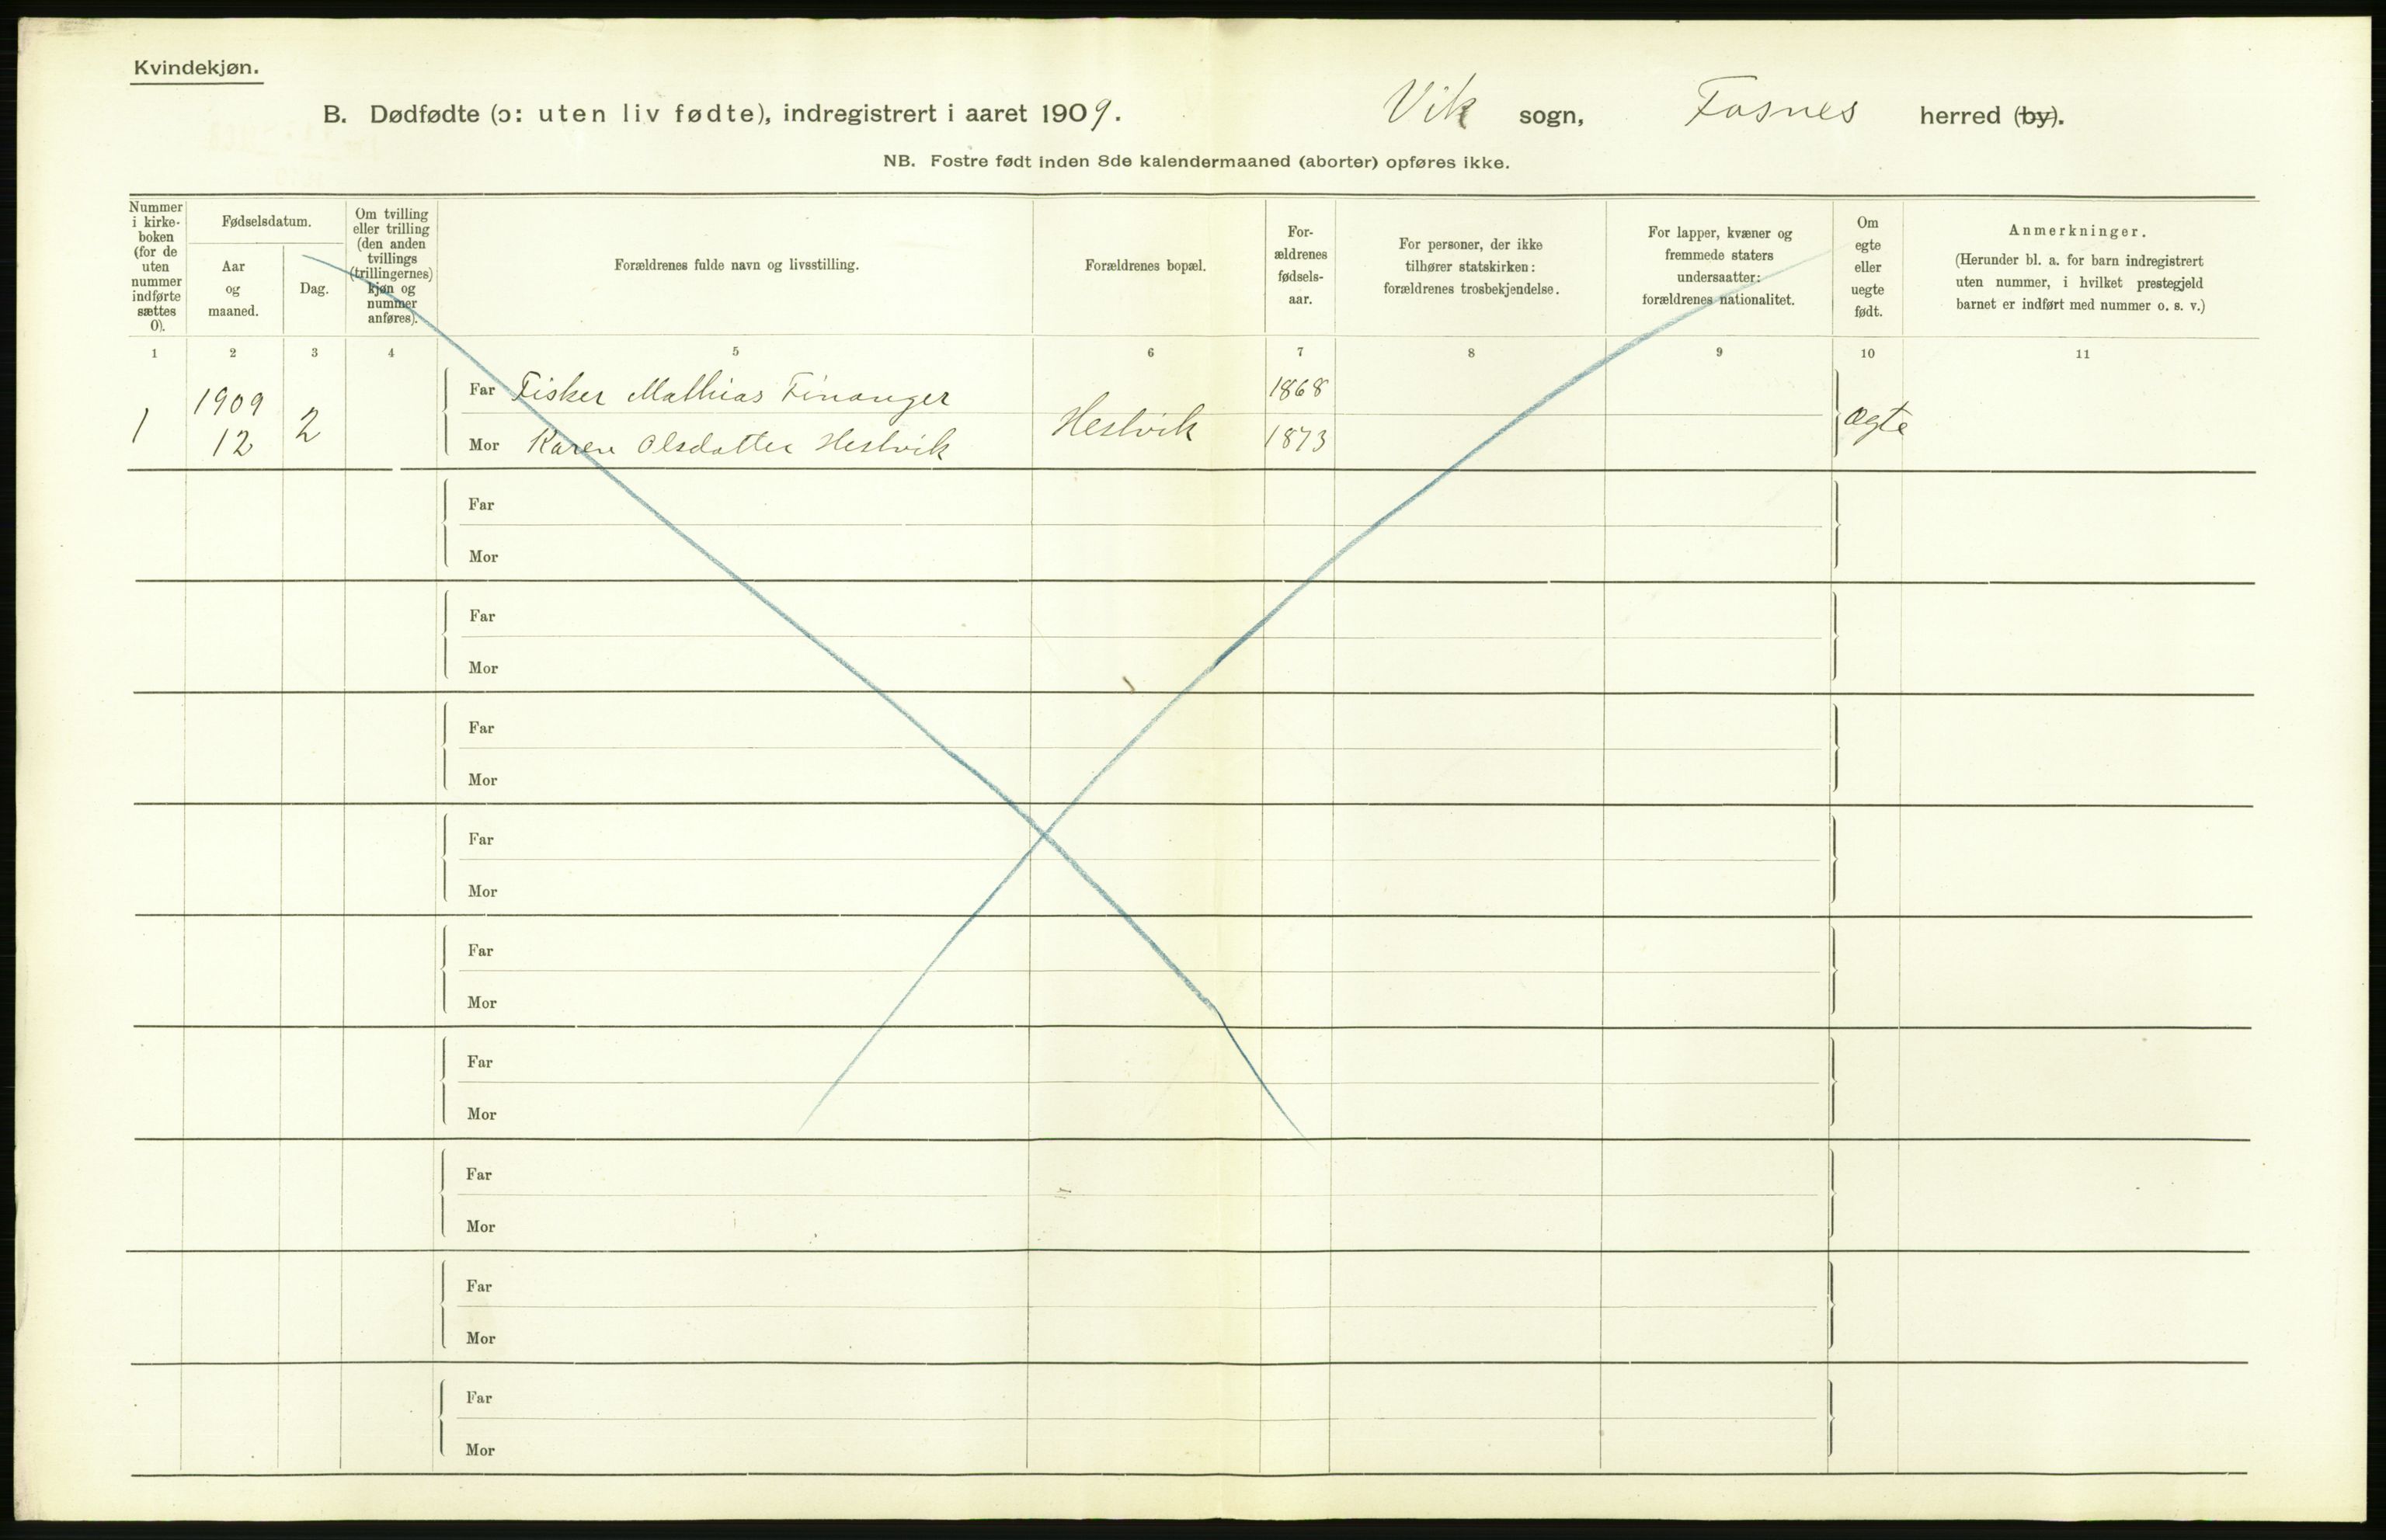 Kvindekjøn.
B. Dødfødte (ɔ: uten liv fødte), indregistrert i aaret 1909. Vik sogn, Fosnes herred (by).
NB. Fostre født inden 8de kalendermaaned (aborter) opføres ikke.
Nummer i kirke-boken (for de uten nummer indførte sættes 0).
Fødselsdatum.
Aar og maaned.
Dag.
Om tvilling eller trilling (den anden tvillings (trillingernes) kjøn og nummer anføres).
Forældrenes fulde navn og livsstilling.
Forældrenes bopæl.
For-ældrenes fødsels-aar.
For personer, der ikke tilhører statskirken: forældrenes trosbekjendelse.
For lapper, kvæner og fremmede staters undersaatter: forældrenes nationalitet.
Om egte eller uegte født.
Anmerkninger.
(Herunder bl. a. for barn indregistrert uten nummer, i hvilket prestegjeld barnet er indført med nummer o. s. v.)
1 2 3 4 5 6 7 8 9 10 11
1 1909 12 2 Far Fisker Mathias Finanger Hestvik 1868 Ægte
Mor Karen Olsdatter Hestvik 1873
Far
Mor
Far
Mor
Far
Mor
Far
Mor
Far
Mor
Far
Mor
Far
Mor
Far
Mor
Far
Mor